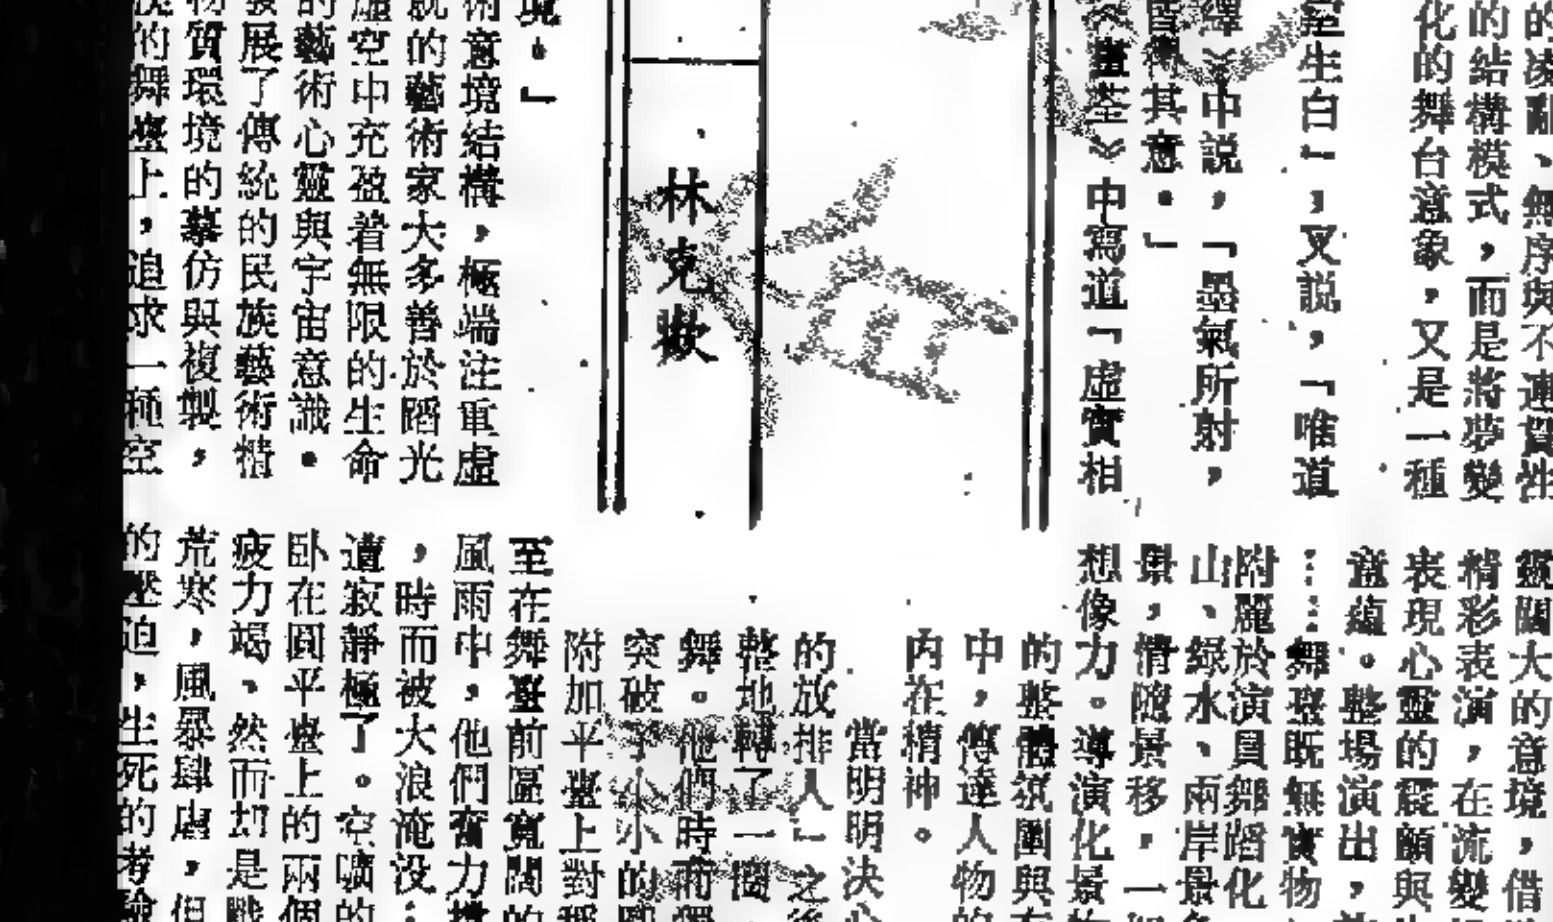 的凌亂、無序與不連貫性
的結構模式，而是將夢變
化的舞台意象，又是一種
室生白」，又説，「唯道
中説，「墨氣所射，
皆得其意。」
《畫荃》中寫道「虛實相
林克歡
境。」
術意境結構，極端注重虛
就的藝術家大多善於蹈光
虛空中充盈着無限的生命
的藝術心靈與宇宙意識。
發展了傳統的民族藝術精
物質環境的摹仿與複製，
的舞臺上，追求一種空
靈闊大的意境，借
精彩表演，在流變
表現心靈的震顫與
意蘊。整場演出，
……舞臺既無實物
附麗於演員舞蹈化
山、綠水、兩岸景
景，情隨景移，一
想像力。導演化景
的整體氛圍與
中，傳達人物
內在精神。
當明明決心
的放排人」之後
整地轉了一圈
舞。他們時而
突破了小小的圓
附加平臺上對
至在舞臺前區寬闊的
風雨中，他們奮力
，時而被大浪淹没
遭寂靜極了。空曠的
卧在圓平臺上的兩個
疲力竭、然而却是戰
荒寒，風暴肆虐，但
的壓迫，生死的考驗